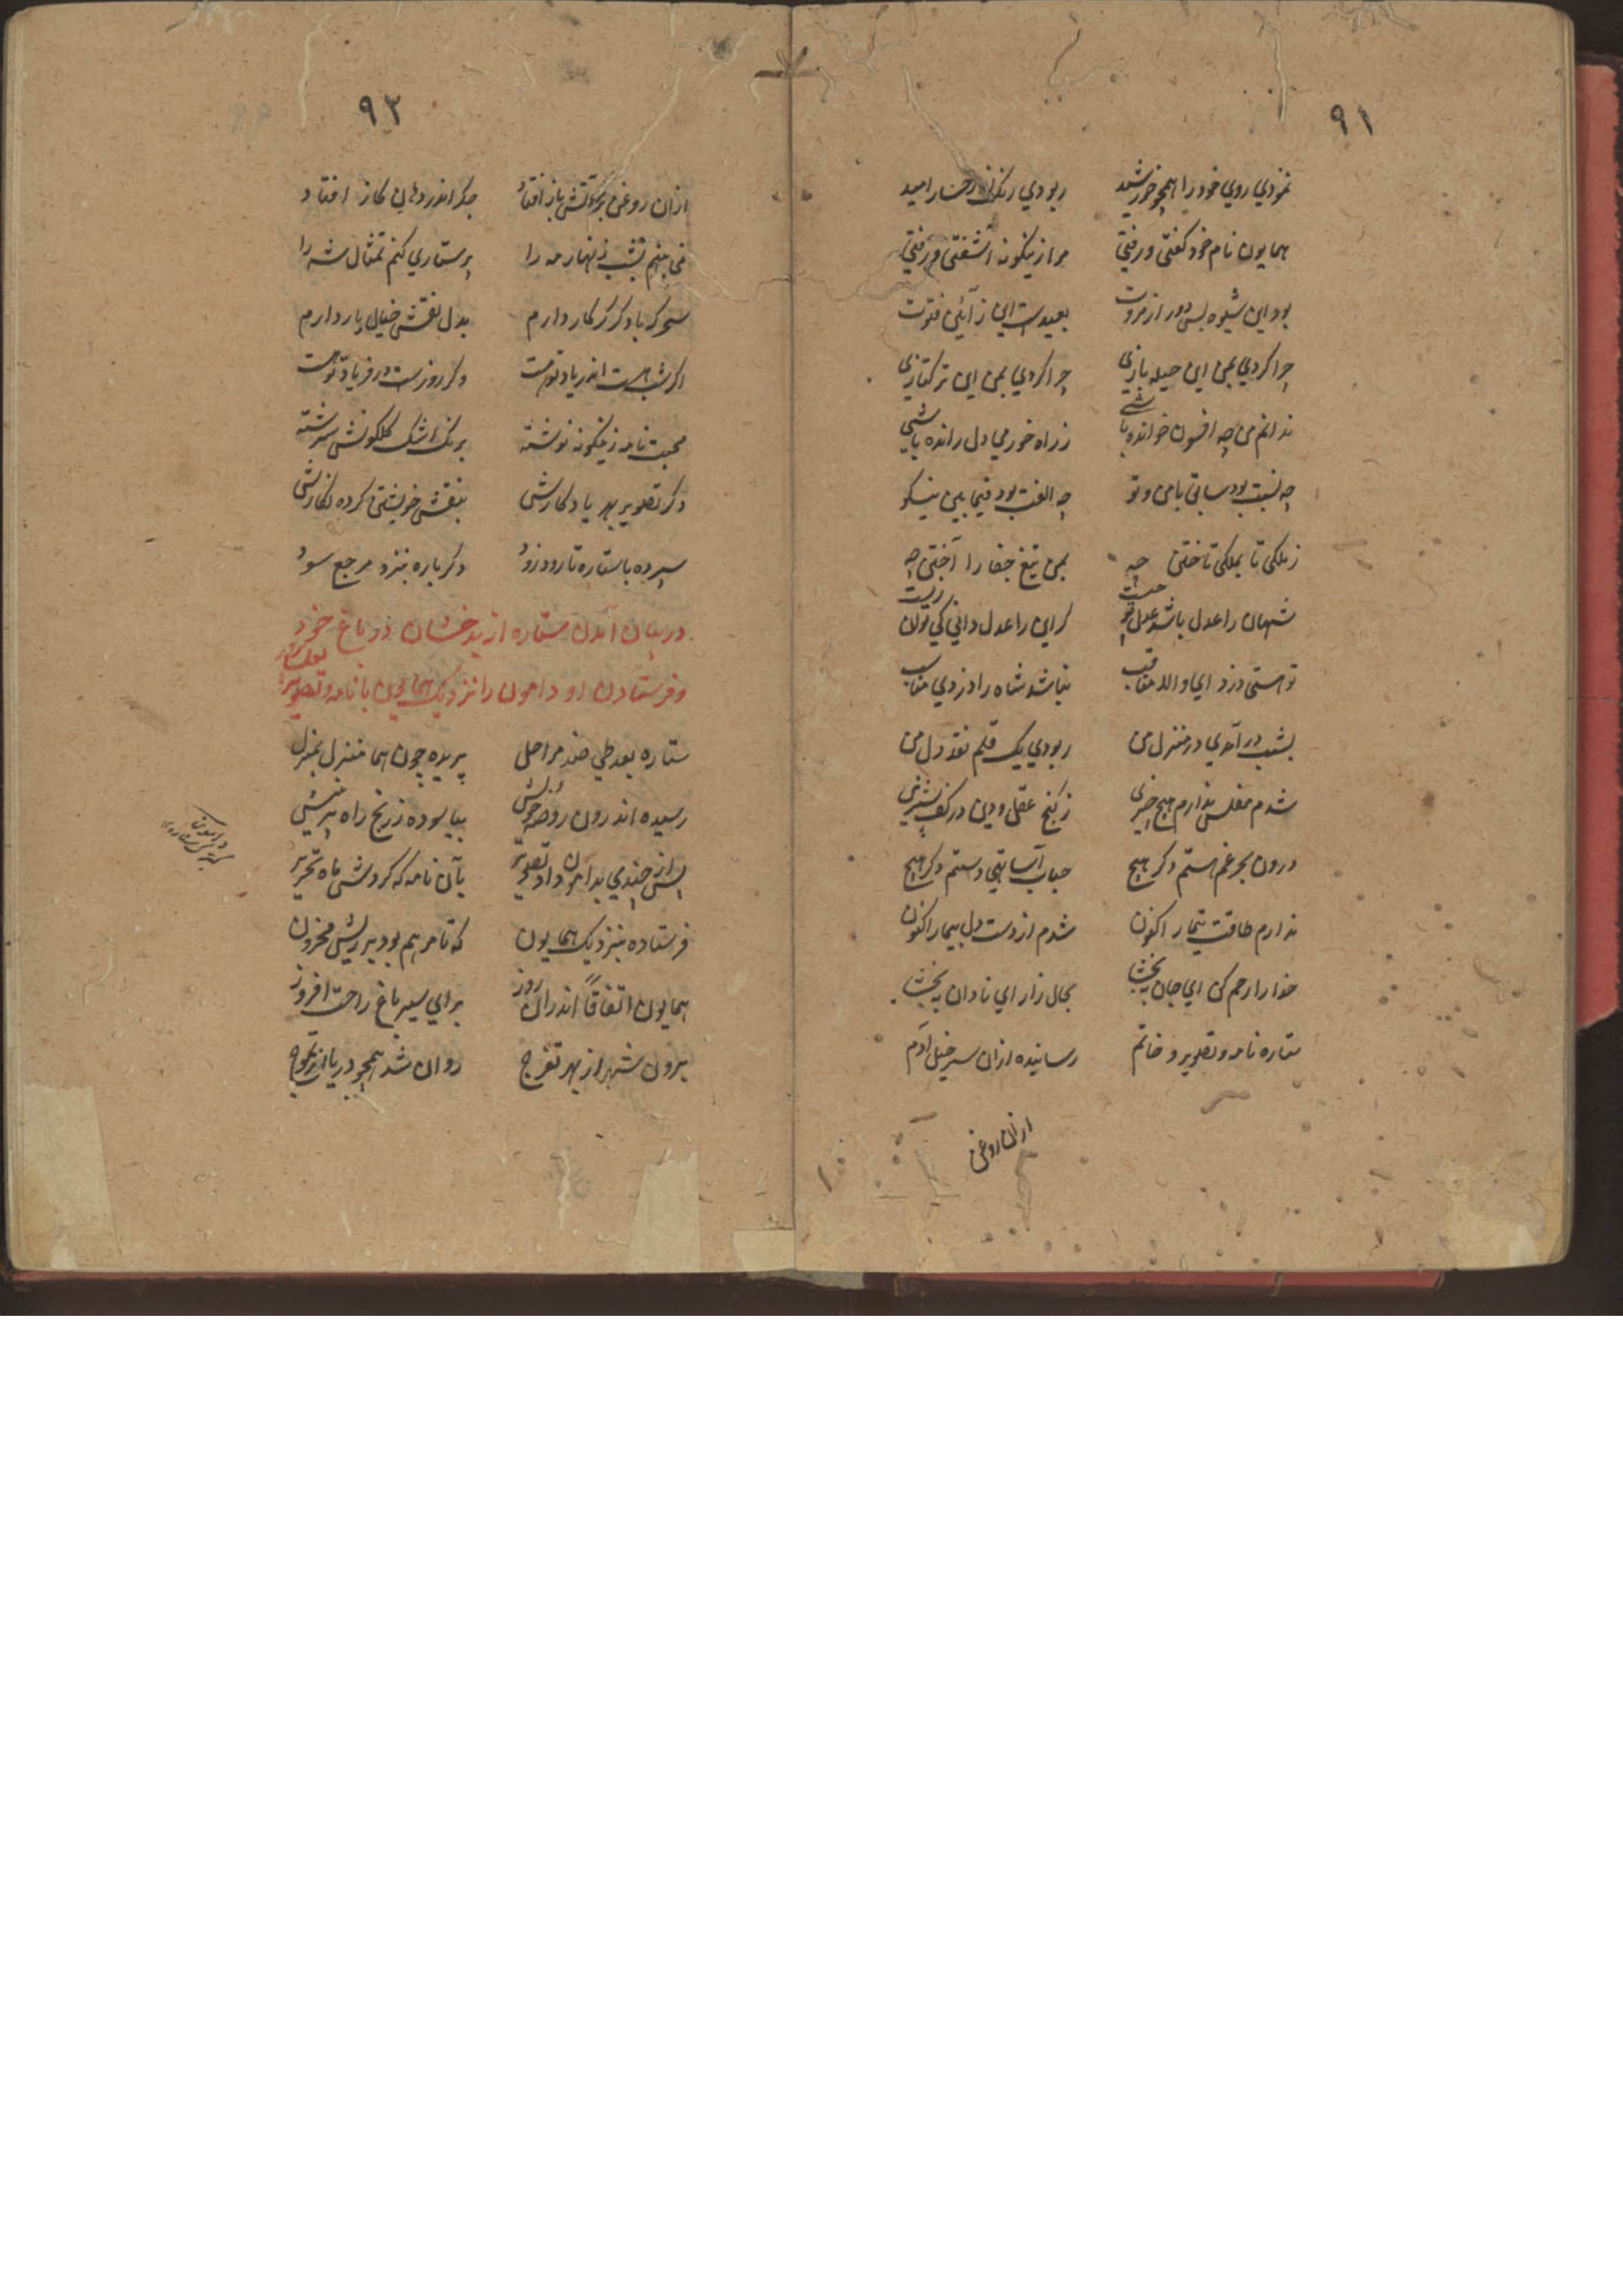 ۹۱
نمودي روي خود را همچو خورشید ربودي رنكم از رخسار امید
همایون نام خود كفتی و رفتي مرا زینكونه آشفتی و رفتي
بود این شیوه بس دور از مروت بعیدست این ز آئین فتوت
چرا كردي بمن این حیله بازي چرا كردي بمن این تركتازي
ندانم من چه افسون خوانده باشي ز راه خورمي دل رانده باشي
چه نسبت بود سابق با من و تو چه الفت بود فیما بین نیكو
ز ملكی تا بملكی تاختن چه بمن تیغ جفا را آختن چه
شهان را عدل باشد عدل تو چیست كر این را عدل داني كي توان زیست
تو هستی دزد اي والا مناقب نباشد شاه را دزدي مناسب
بشب در آمدي در منزل من ربودي یك قلم نقد دل من
شدم مفلس ندارم هیچ چیزي ز كنج عقل و دین در كف پشیزي
درون بحر غم هستم دكر هیچ حباب آسا تهي دستم دكر هیچ
ندارم طاقت تیمار اكنون شدم از دست دل بیمار اكنون
خدا را رحم كن اي جان ببخشا بحال زار اي نادان ببخشا
ستاره نامه و تصویر و خاتم رسانیده ازان سرخیل آدم
ازان روغن
۹۲
ازان روغن بر آتش باز افتاد جكر اندر دهان كاز افتاد
نمي بینم بشب زنهار مه را پرستاري كنم تمثال شه را
سحر كر با دكر كر كار دارم بدل نقش خیال یار دارم
اكر شب هست اندر یاد تو هست وكر روزست در فریاد تو هست
محبت نامه زینكونه نوشته برنك اشك كلكونش سرشته
دكر تصویر بهر یادكارش بنقش خویشتن كرده نكارش
سپرده با ستاره تا رود زود دكرباره بنزد مرجع سود
در بیان آمدن ستاره از بدخشان در باغ خود
و فرستادن او دامون را نزدیك همایون با نامه و تصویر
ستاره بعد طي صد مراحل پریده چون هما منزل بمنزل
رسیده اندرون روضه خویش بیاسوده ز رنج راه پر نیش
پس از چندي بدامون داد تصویر بآن نامه كه كردش ماه تحریر
فرستاده بنزدیك همایون كه تا مرهم بود بر ریش محزون
همایون اتفاقاً اندران روز براي سیر باغ راحت افروز
برون شهر از بهر تفرج روان شد همچو دریا از تموج